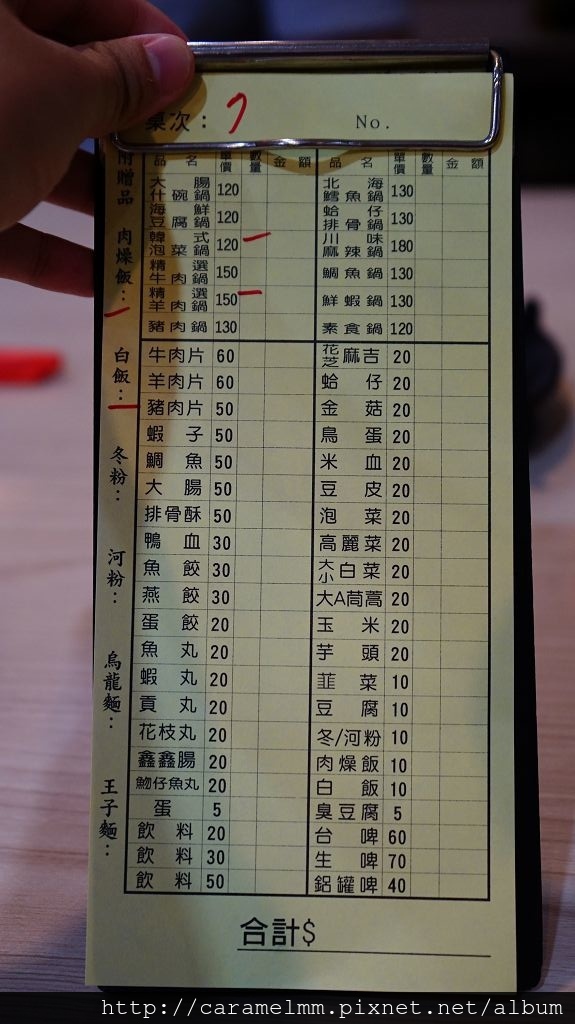 桌次： 7 No.
附贈品 肉燥飯：
白飯：
冬粉：
河粉：
烏龍麵：
王子麵：
品名 單價 數量 金額 品名 單價 數量 金額
大腸什碗鍋 120 北海鱈魚鍋 130
海鮮豆腐鍋 120 蛤仔排骨鍋 130
韓式泡菜鍋 120 一 川味麻辣鍋 180
精選牛肉鍋 150 鯛魚鍋 130
精選羊肉鍋 150 一 鮮蝦鍋 130
豬肉鍋 130 素食鍋 120
牛肉片 60 花芝麻吉 20
羊肉片 60 蛤仔 20
豬肉片 50 金菇 20
蝦子 50 鳥蛋 20
鯛魚 50 米血 20
大腸 50 豆皮 20
排骨酥 50 泡菜 20
鴨血 30 高麗菜 20
魚餃 30 大小白菜 20
燕餃 30 大A茼蒿 20
蛋餃 20 玉米 20
魚丸 20 芋頭 20
蝦丸 20 韮菜 10
貢丸 20 豆腐 10
花枝丸 20 冬/河粉 10
鑫鑫腸 20 肉燥飯 10
魩仔魚丸 20 白飯 10
蛋 5 臭豆腐 5
飲料 20 台啤 60
飲料 30 生啤 70
飲料 50 鋁罐啤 40
合計$
http://caramelmm.pixnet.net/album